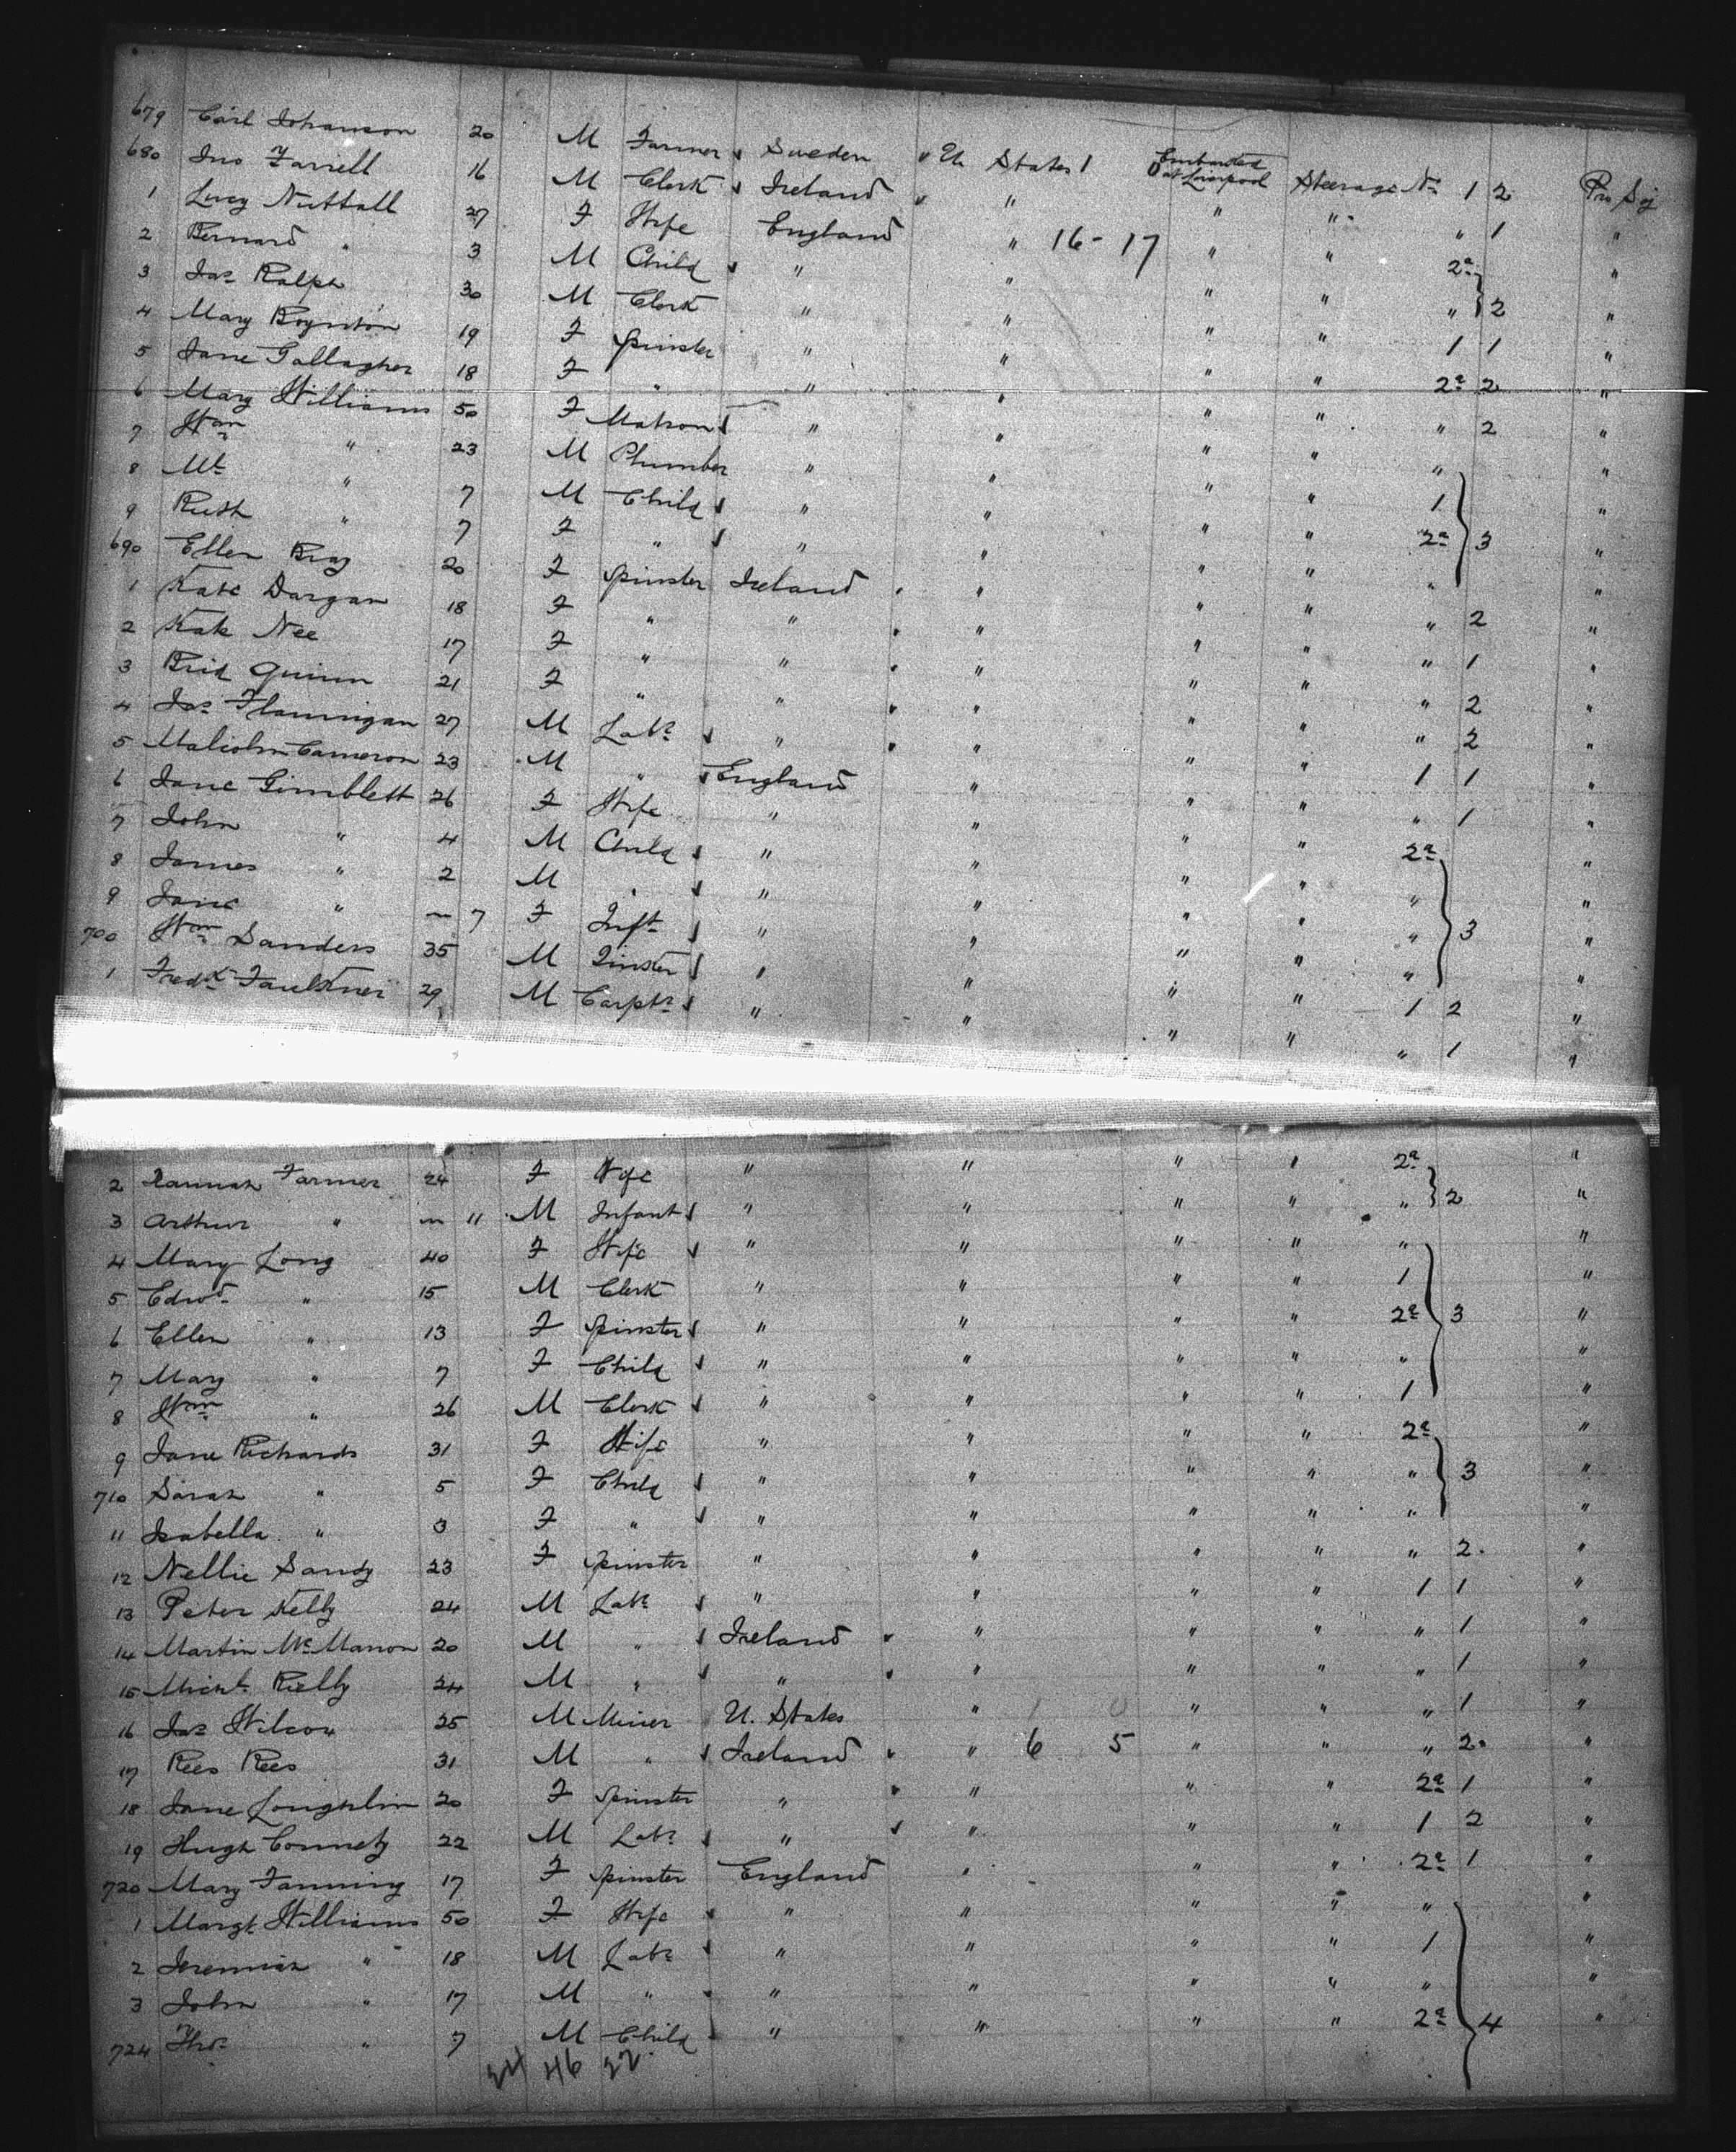 679 Carl Johanson 20 M Farmer Sweden " U States 1 Embarked at Liverpool Steerage No 1 2 Pro Soj
680 Jno Farrell 16 M Clerk Ireland " " " " " 1 "
1 Lucy Nuttall 27 F Wife England " 16-17 " " 2a "
2 Bernard " 3 M Child " " " " " 2 "
3 Jas Ralph 30 M Clerk " " " " 1 1 "
4 Mary Boynton 19 F Spinster " " " " 2a 2 "
5 Jane Gallagher 18 F " " " " " " 2 "
6 Mary Williams 50 F Matron " " " " " "
7 Wm " 23 M Plumber " " " " 1 "
8 " 7 M Child " " " " 2a 3 "
9 Ruth " 7 F " " " " " " "
690 Ellen Bray 20 F Spinster Ireland " " " " 2 "
1 Kate Dargan 18 F " " " " " " 1 "
2 Kate Nee 17 F " " " " " " 2 "
3 Brid Quinn 21 F " " " " " " 2 "
4 Jas Flannigan 27 M Labr " " " " 1 1 "
5 Malcolm Cameron 23 M " England " " " " 1 "
6 Jane Gimblett 26 F Wife " " " " 2a "
7 John " 4 M Child " " " " " "
8 James " 2 M " " " " " " 3 "
9 Jane " 7 F Inft " " " " " "
700 Wm Sanders 35 M " " " " 1 2 "
1 Fredk Faulkner 29 M Carptr " " " " " 1 "
2 Hannah Farmer 24 F Wife " " " " 2a "
3 Arthur " 11 M Infant " " " " " 2 "
4 Mary Long 40 F Wife " " " " " "
5 Edwd " 15 M Clerk " " " " 1 "
6 Ellen " 13 F Spinster " " " " 2a 3 "
7 Mary " 7 F Child " " " " " "
8 Wm " 26 M Clerk " " " " 1 "
9 Jane Richards 31 F Wife " " " " 2a "
710 Sarah " 5 F Child " " " " " 3 "
11 Isabella " 3 F " " " " " " "
12 Nellie Sandy 23 F Spinster " " " " " 2 "
13 Peter Kelly 24 M Labr " " " " 1 1 "
14 Martin McMannon 20 M " Ireland " " " " 1 "
15 Michl Rielly 24 M " " " " " " 1 "
16 Jas Wilcox 25 M Miner U. States " " " " 1 "
17 Rees Rees 31 M " Ireland " 6 5 " " " 2 "
18 Jane Loughlin 20 F Spinster " " " " 2a 1 "
19 Hugh Connety 22 M Labr " " " " 1 2 "
720 Mary Fanning 17 F Spinster England " " " 2a 1 "
1 Margt Williams 50 F Wife " " " " " "
2 Jeremiah " 18 M Labr " " " " 1 "
3 John " 17 M " " " " " " "
724 Thos " 7 M Child " " " " 2a 4 "
24 46 22